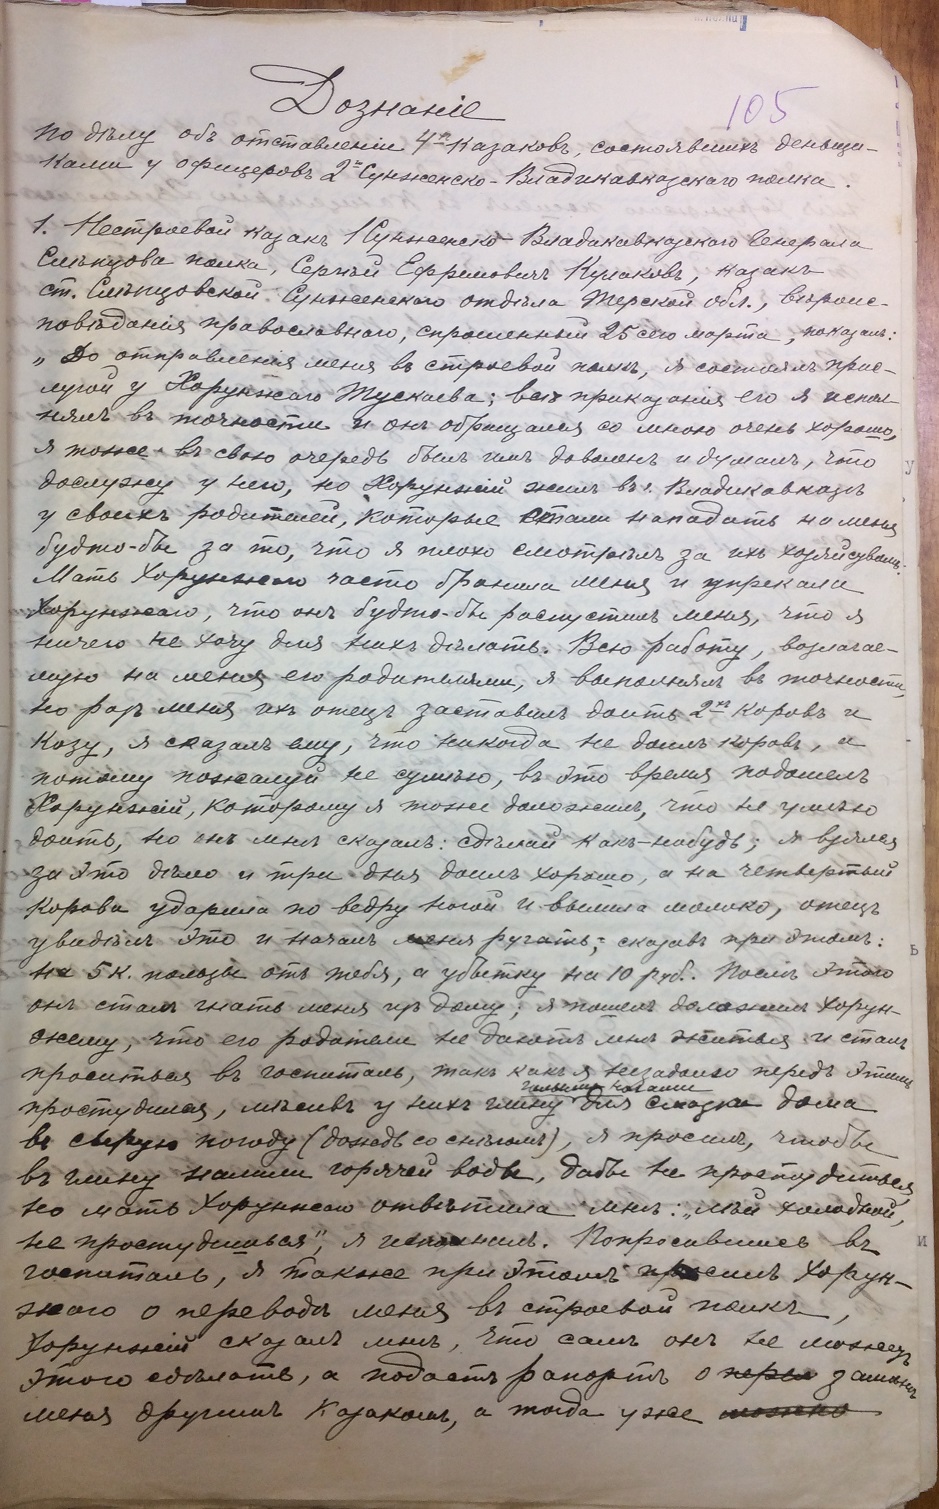 105
Дознаніе
по дѣлу объ отставленіи 4хъ казаковъ, состоявшихъ денщи-
ками у офицеровъ 2го Сунженско-Владикавказскаго полка.
1. Нестроевой казакъ 1 Сунженско-Владикавказскаго Генерала
Слѣпцова полка, Сергѣй Ефремовичъ Кулаковъ, казакъ
ст. Слѣпцовской Сунженскаго отдѣла Терской обл., вѣроис-
повѣданія православнаго, спрошенный 25 сего марта, показалъ:
„До отправленія меня въ строевой полкъ, я состоялъ прис-
лугой у Хорунжаго Тускаева; всѣ приказанія его я испол-
нялъ въ точности и онъ обращался со мною очень хорошо,
я тоже въ свою очередь былъ имъ доволенъ и думалъ, что
дослужу у него, но Хорунжій жилъ въ г. Владикавказѣ
у своихъ родителей, которые стали нападать на меня
будто-бы за то, что я плохо смотрѣлъ за ихъ
Мать Хорунжаго часто бранила меня и упрекала
Хорунжаго, что онъ будто-бы распустилъ меня, что я
ничего не хочу для нихъ дѣлать. Всю работу, возлагае-
мую на меня его родителями, я выполнялъ въ точности,
но разъ меня ихъ отецъ заставилъ доить 2хъ коровъ и
козу, я сказалъ ему, что никогда не доилъ коровъ, а
потому пожалуй не сумѣю, въ это время подошелъ
Хорунжій, которому я тоже доложилъ, что не умѣю
доить, но онъ мнѣ сказалъ: сдѣлай какъ-нибудь; я взялся
за это дѣло и три дня доилъ хорошо, а на четвертый
корова ударила по ведру ногой и вылила молоко, отецъ
увидѣлъ это и началъ меня ругать, сказавъ при этомъ:
на 5 к. пользы отъ тебя, а убытку на 10 руб. Послѣ этого
онъ сталъ гнать меня изъ дому; я пошелъ доложилъ Хорун-
жему, что его родители не даютъ мнѣ житья и сталъ
проситься въ госпиталь, такъ какъ я незадолго передъ этимъ
простудился, мѣсивъ у нихъ глину для смазки дома
въ сырую погоду (дождь со снѣгомъ), я просилъ, чтобы
въ глину налили горячей воды, дабы не простудиться,
но мать Хорунжаго отвѣтила мнѣ: „мѣй холодной,
не простудишься", я исполнилъ. Попросившись въ
госпиталь, я также при этомъ просилъ Хорун-
жаго о переводѣ меня въ строевой полкъ,
Хорунжій сказалъ мнѣ, что самъ онъ не можетъ
этого сдѣлать, а подастъ рапортъ о замѣнѣ
меня другимъ казакомъ, а тогда уже можно